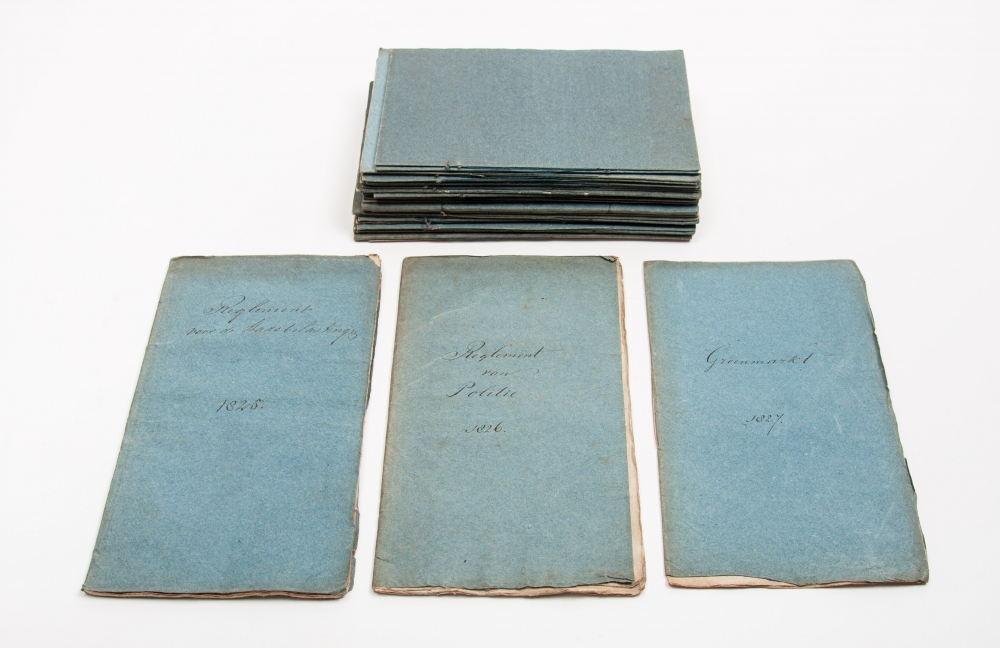 Reglement
voor de Stadsbelasting
1825.
Reglement
van
Politie
1826.
Groenmarkt
1827.